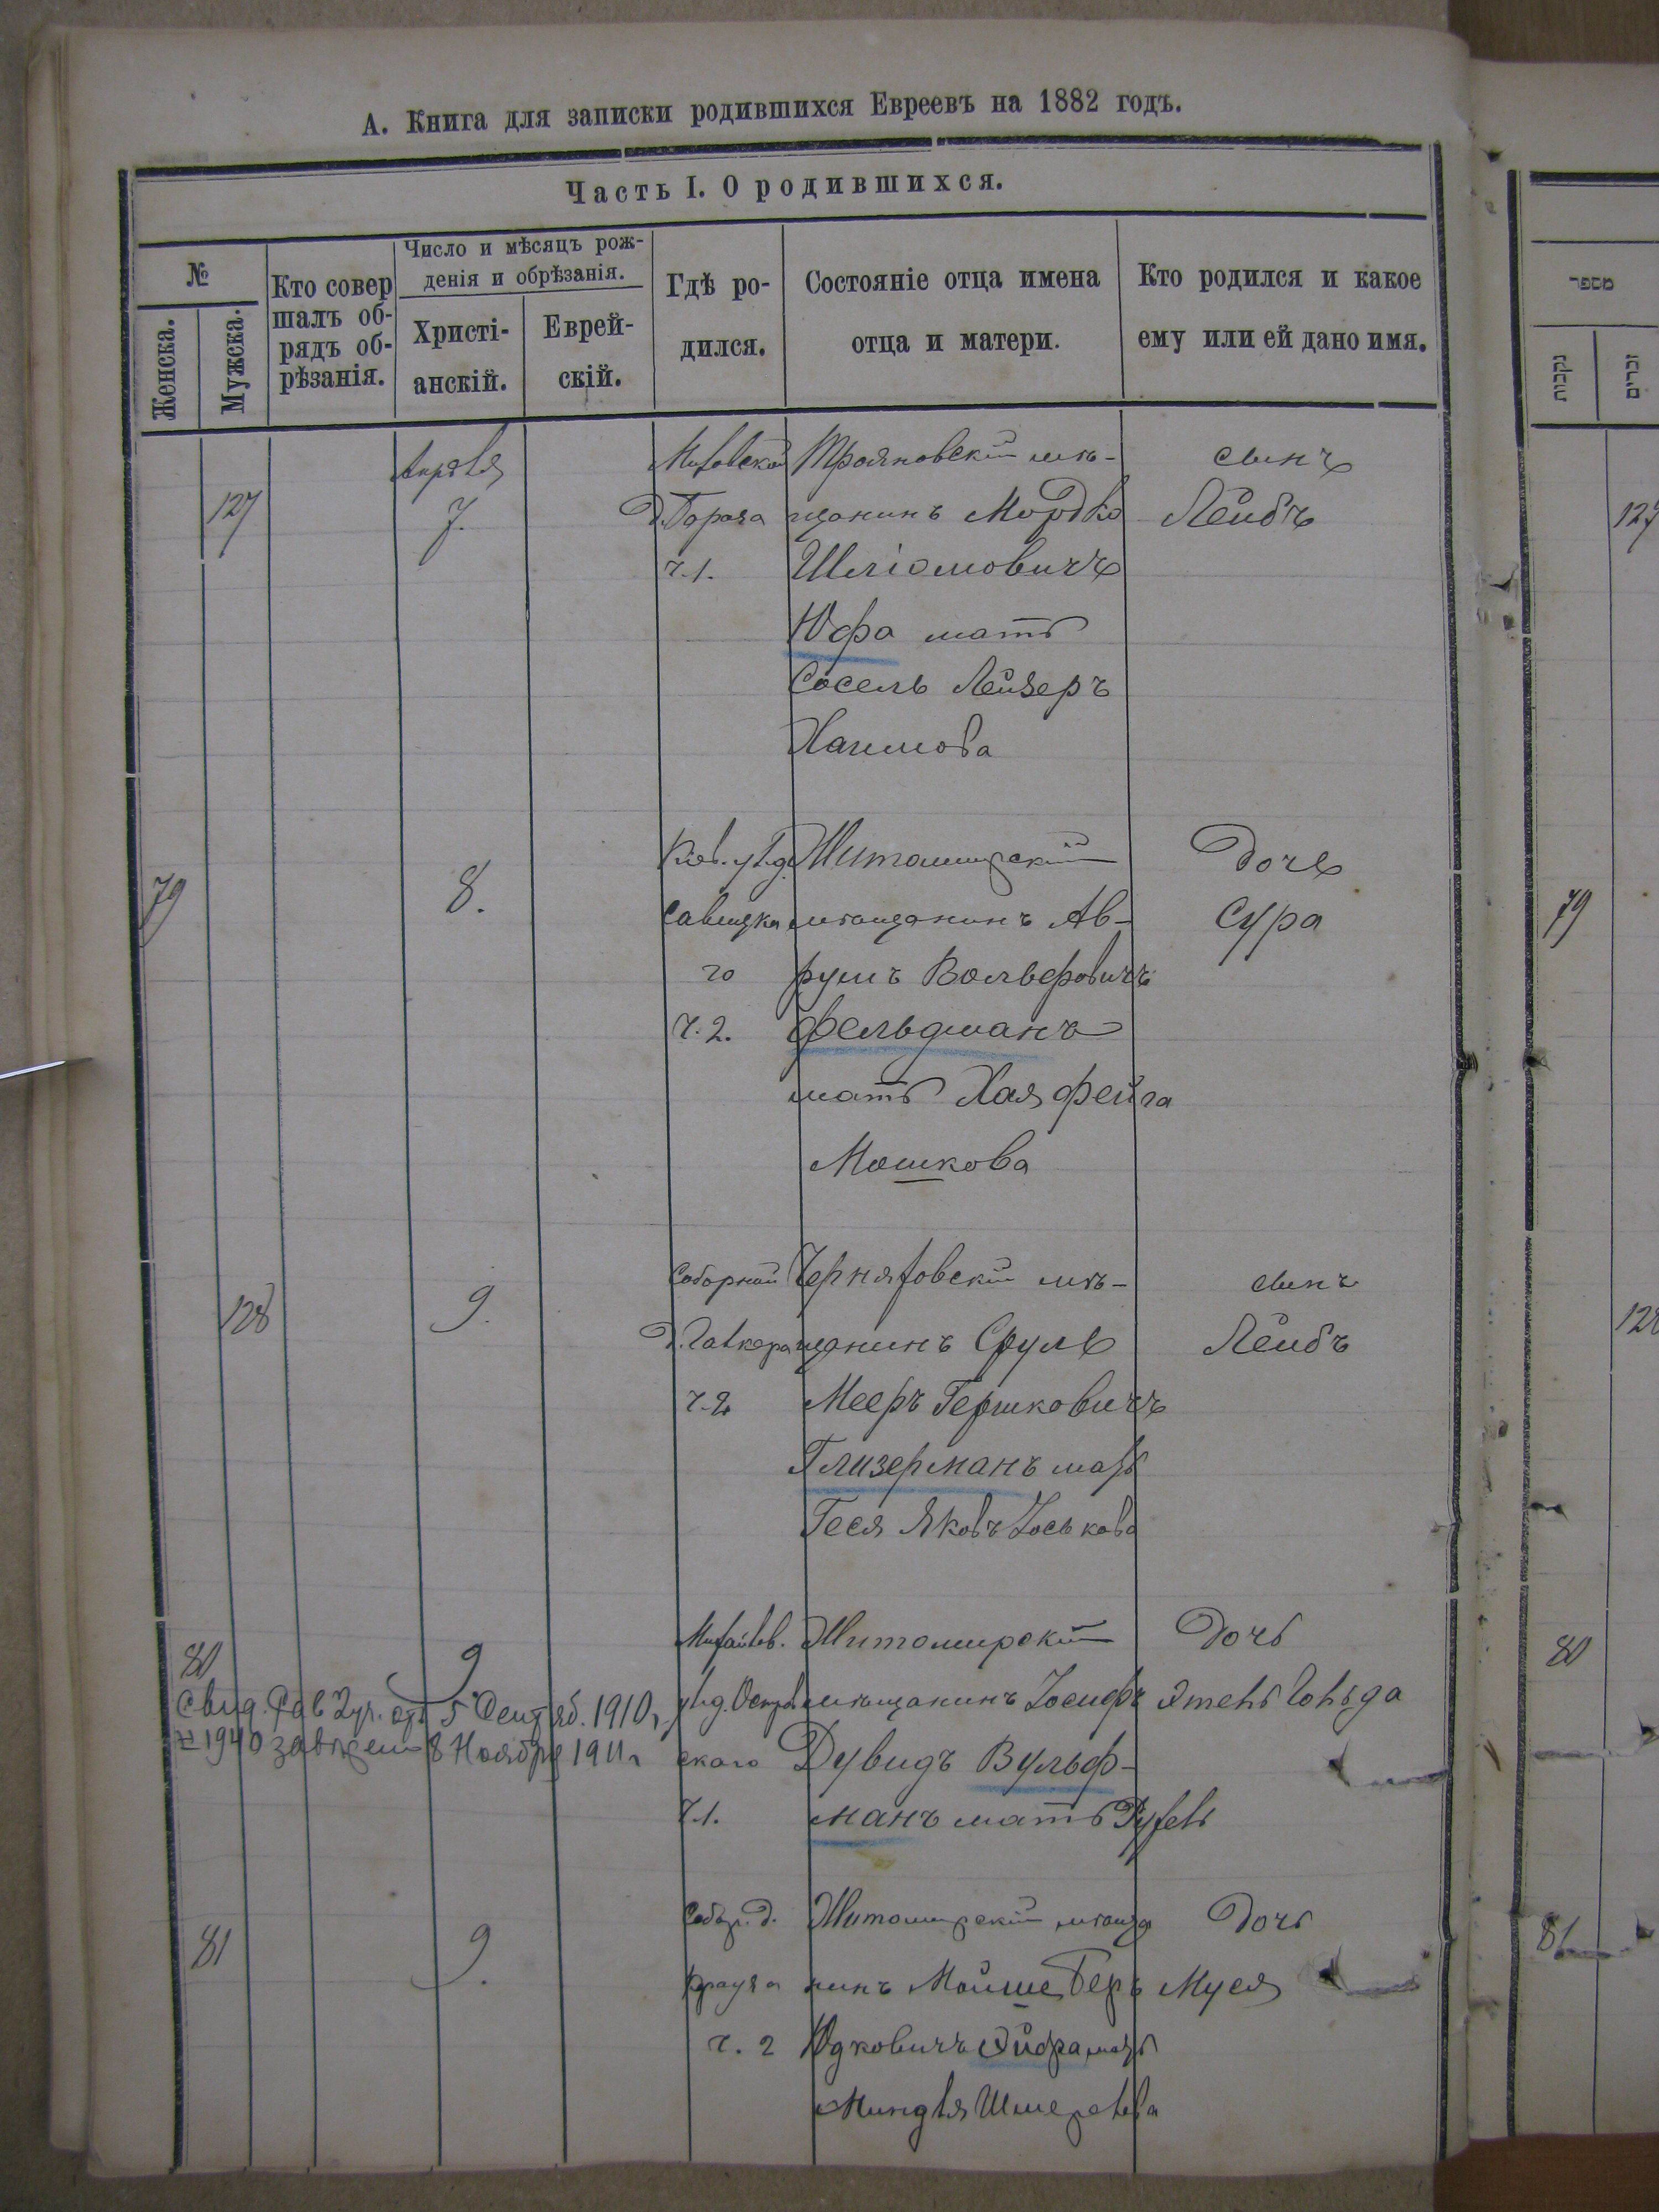 А. Книга для записки родившихся Евреевъ на 1882 годъ.
Часть I. О родившихся.
№
Женска.
Мужска.
Кто совер
шалъ об-
рядъ об-
рѣзанія.
Число и мѣсяцъ рож-
денія и обрѣзанія.
Христі-
анскій.
Еврей-
скій.
Гдѣ ро-
дился.
Состояніе отца имена
отца и матери.
Кто родился и какое
ему или ей дано имя.
מספר
נקבות
זכרים
127
Апрѣля
7.
ч.1.
Трояновскій мѣ-
щанинъ Мордко
Шліомовичъ
Юфа мать
Сосель Лейзеръ
Хаимова
сынъ
Лейбъ
127
79
8.
Савицка
го
ч.2.
Житомирскій
мѣщанинъ Ав-
румъ Вольфовичъ
Фельдманъ
мать Хая Фейга
Мошкова
Дочь
Сура
79
128
9.
Соборной
ч.2
Черняховскій мѣ-
щанинъ Сруль
Мееръ Гершковичъ
Глизерманъ мать
Геся Яковъ Іоськова
сынъ
Лейбъ
128
80
9
Свид. 5 Сентяб. 1910 г.
1940 8 Ноября 1911 г
Михайлов.
ского
ч.1.
Житомирскій
мѣщанинъ Іосифъ
Дувидъ Вульф-
манъ мать Рухель
Дочь
Этель Гольда
80
81
9.
ч. 2
Житомирскій мѣща
нинъ Мойше Беръ
Юдковичъ мать
Миндля Шмерлева
Дочь
Муся
81